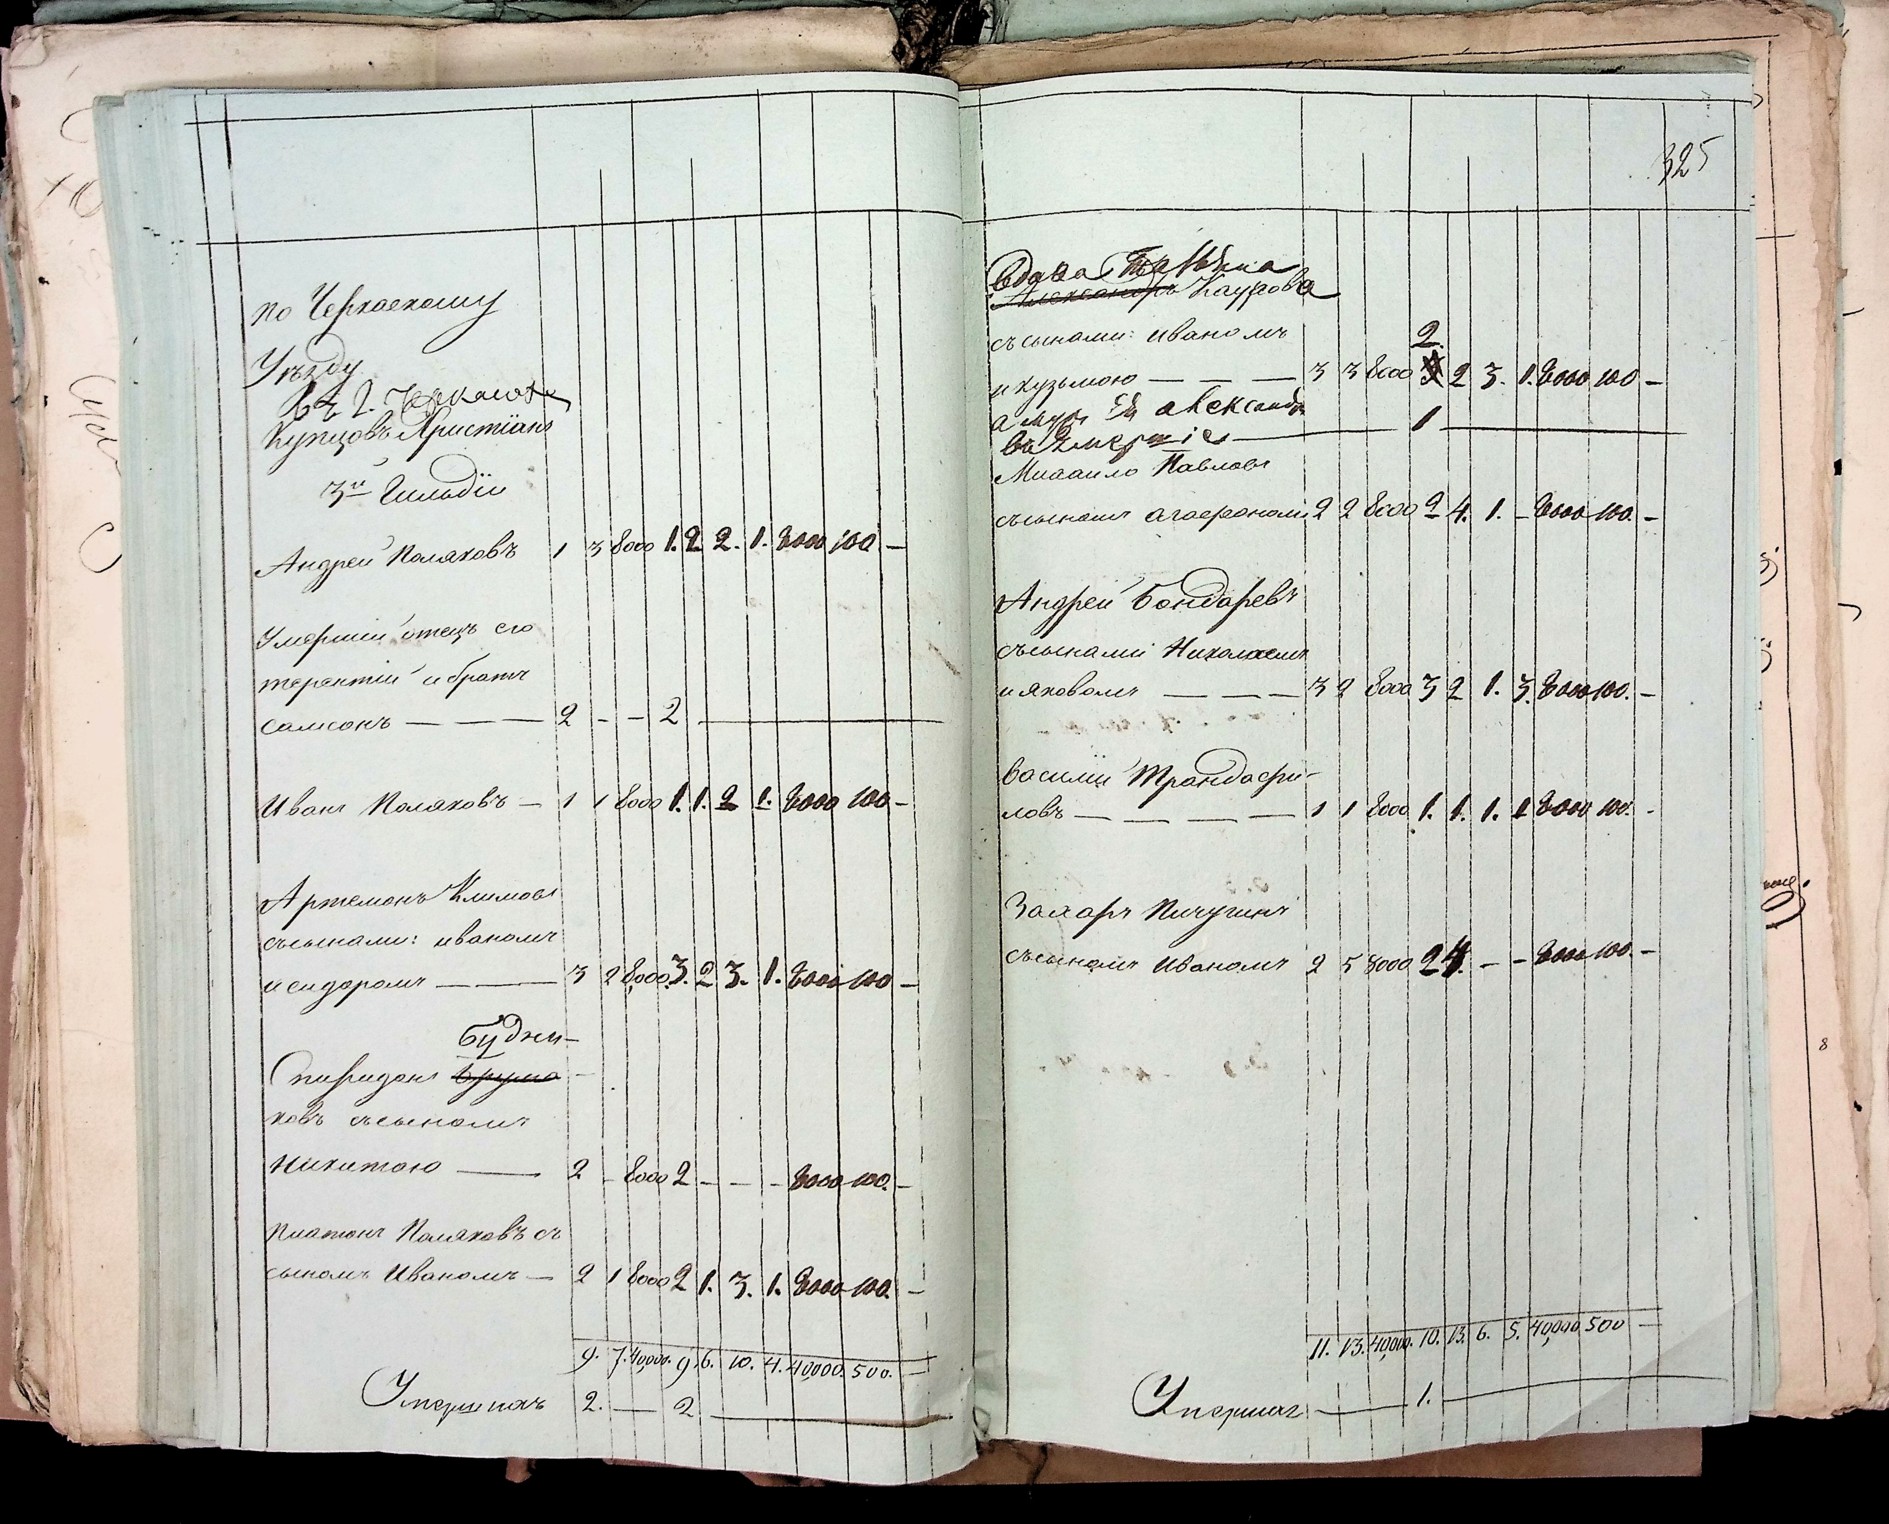 по Черкаскому
Уѣзду
въ г. Черкасахъ
Купцовъ Християнъ
3й Гильдїи
Андрей Поляковъ 1 3 8000 1. 2. 2. 1. 8000 100 —
Умершїй отецъ его
терентїй и братъ
самсонъ — — — 2 - - 2
Иванъ Поляковъ — 1 1 8000 1. 1. 2 1. 8000 100 —
Артемонъ Климовъ
съсынами: иваномъ
и сидоромъ — — 3 2 8,000. 3. 2 3. 1. 8000 100 —
Будни-
Спиридонъ
ковъ съсыномъ
Никитою — 2 - 8000 2 - - - 8000 100. —
Платонъ Поляковъ съ
сыномъ Иваномъ — 2 1 8000 2 1. 3. 1. 8000 100. —
9. 7. 40,000. 9. 6. 10. 4. 40,000. 500. —
Умершихъ 2. — 2
325
вдова Татьяна
Александръ Каурова
съсынами: иваномъ
2.
и кузьмою — — — 3 3 8000 3 2 3. 1. 8000 100 —
а мужъ её александръ 1
въ умершїе
Михаило Павловъ
съсыномъ агафономъ 2 2 8000 2 4. 1. - 8000 100. —
Андрей Бондаревъ
съсынами Николаемъ
и яковомъ — — — 3 2 8000 3 2 1. 3. 8000 100. —
василїй Трандафи-
ловъ — — — — 1 1 8000 1. 1. 1. 1 8000 100. -
Захаръ Пичугинъ
съсыномъ Иваномъ 2 5 8000 2 4. - - 8000 100. —
11. 13. 40,000. 10. 13. 6. 5. 40,000 500 —
Умершихъ — 1.